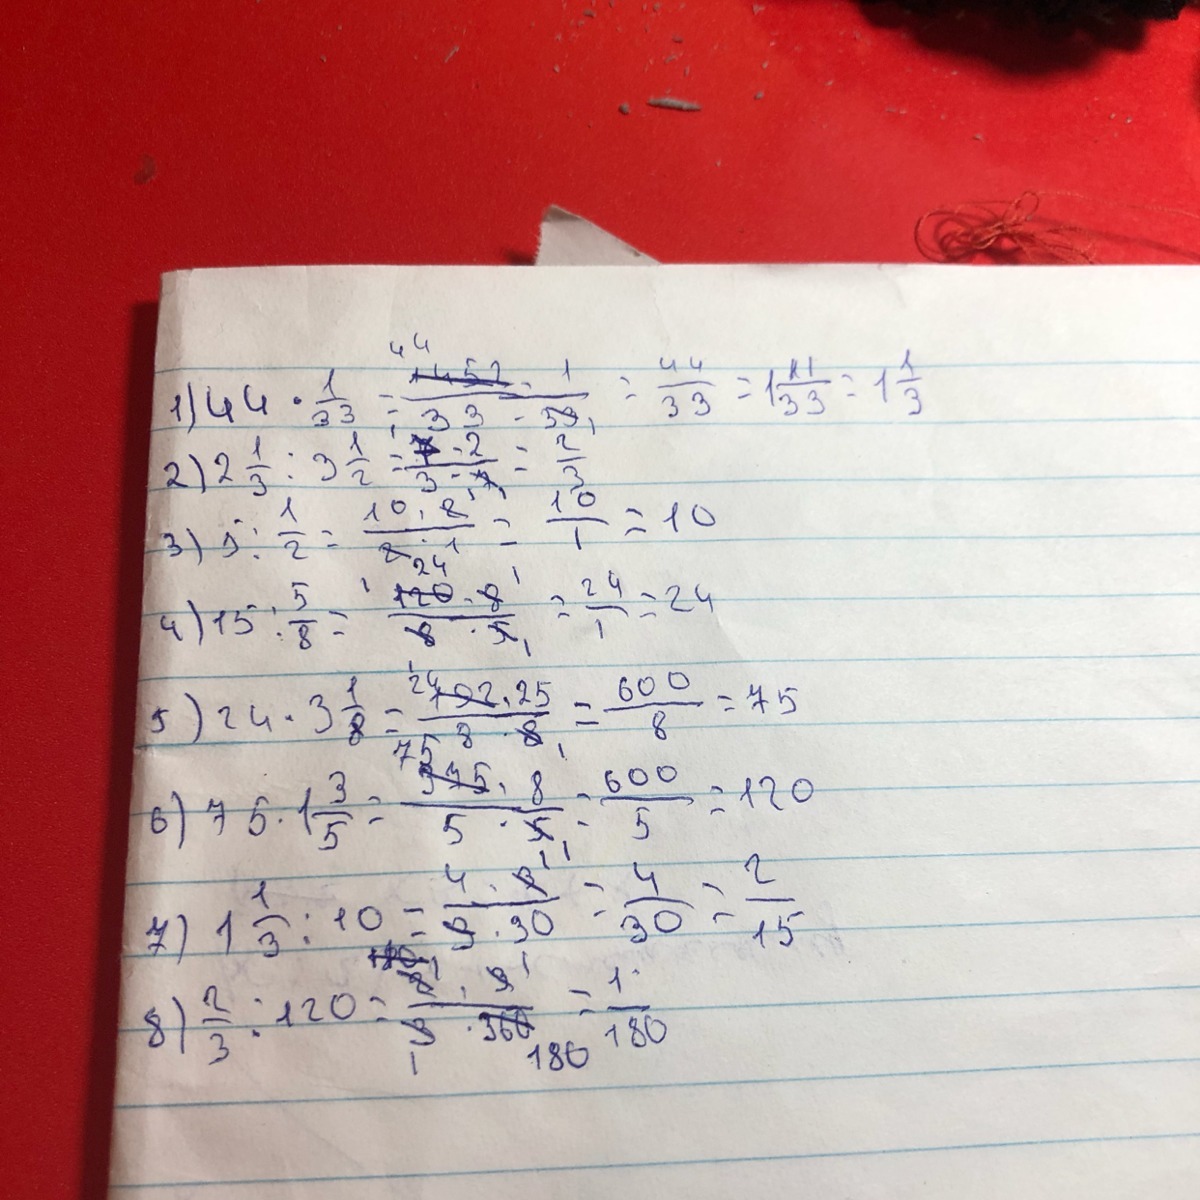 1) 44 · 1/33 = 44 1452 · 1 / 33 · 33 1 = 44/33 = 1 11/33 = 1 1/3
2) 2 1/3 : 3 1/2 = 7 · 2 / 3 · 7 1 = 2/3
3) 5 : 1/2 = 10 · 2 1 / 2 · 1 = 10/1 = 10
4) 15 : 5/8 = 24 120 · 8 1 / 8 · 5 1 = 24/1 = 24
5) 24 · 3 1/8 = 24 192 · 25 / 8 · 8 1 = 600/8 = 75
6) 75 · 1 3/5 = 75 375 · 8 / 5 · 5 1 = 600/5 = 120
7) 1 1/3 : 10 = 4 · 3 1 / 3 · 30 = 4/30 = 2/15
8) 2/3 : 120 = 2 1 · 3 1 / 3 1 · 360 180 = 1/180